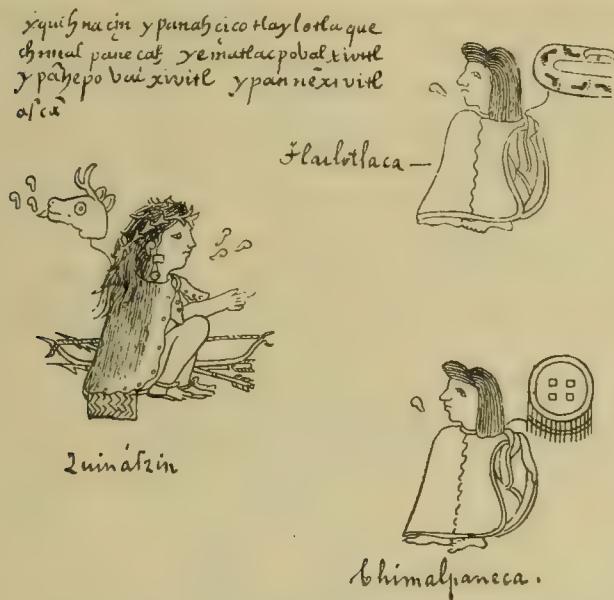 yquihnaçin ypanahcico tlaylotlaque
chimalpanecah yematlacpoval xivitl
ypāhepovali xivitl ypannēxivitl
Tlailotlaca
Quinátzin
Chimalpaneca.